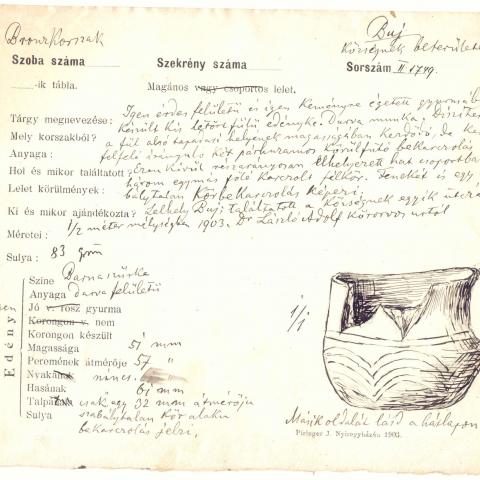 Bronzkorszak
Buj
községnek belterülete
Szoba száma
Szekrény száma
Sorszám II. 1749.
-ik tábla.
Magános vagy csoportos lelet.
Tárgy megnevezése : Igen érdes felületű és igen keményre égetett gyurmából
Mely korszakból? készült kis letört fülü edényke. Durva munka.
a fül alsó tapadási helyének magasságában kezdődő, de
Anyaga : felfelé irányuló két párhuzamos körülfutó bekarcolás
Hol és mikor találtatott? Ezen kívül rézsarányosan elhelyezett hat csoportban
Lelet körülmények : három egymás fölé karczolt félkör. Fenekét is egy
bálytalan körbekarcolás képezi.
Ki és mikor ajándékozta? Lelhely Buj; találtatott a községnek egyik utczá
Méretei : 1/2 méter mélységben 1903. Dr László Adolf körorvos urtól
Sulya : 83 grm
Edény
Szine Barnaszürke
Anyaga durva felületü
Jó v. rosz gyurma
Korongon v. nem
Korongon készült
Magassága 51 mm
Peremének átmérője 57 "
Nyakának nincs.
Hasának 61 mm
Talpának csak egy 32 mm átmérőjü
Sulya szabálytalan kör alaku
bekarczolás jelzi.
1/1
Másik oldalát lásd a hátlapon
Piringer J. Nyiregyházán 1903.